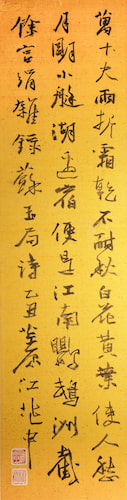 雨折霜乾不耐秋白花黃葉使人愁
月明小艇湖邊宿便是江南鸚鵡洲截
餘宮絹雜錄蘇玉局詩乙丑茮原江兆申